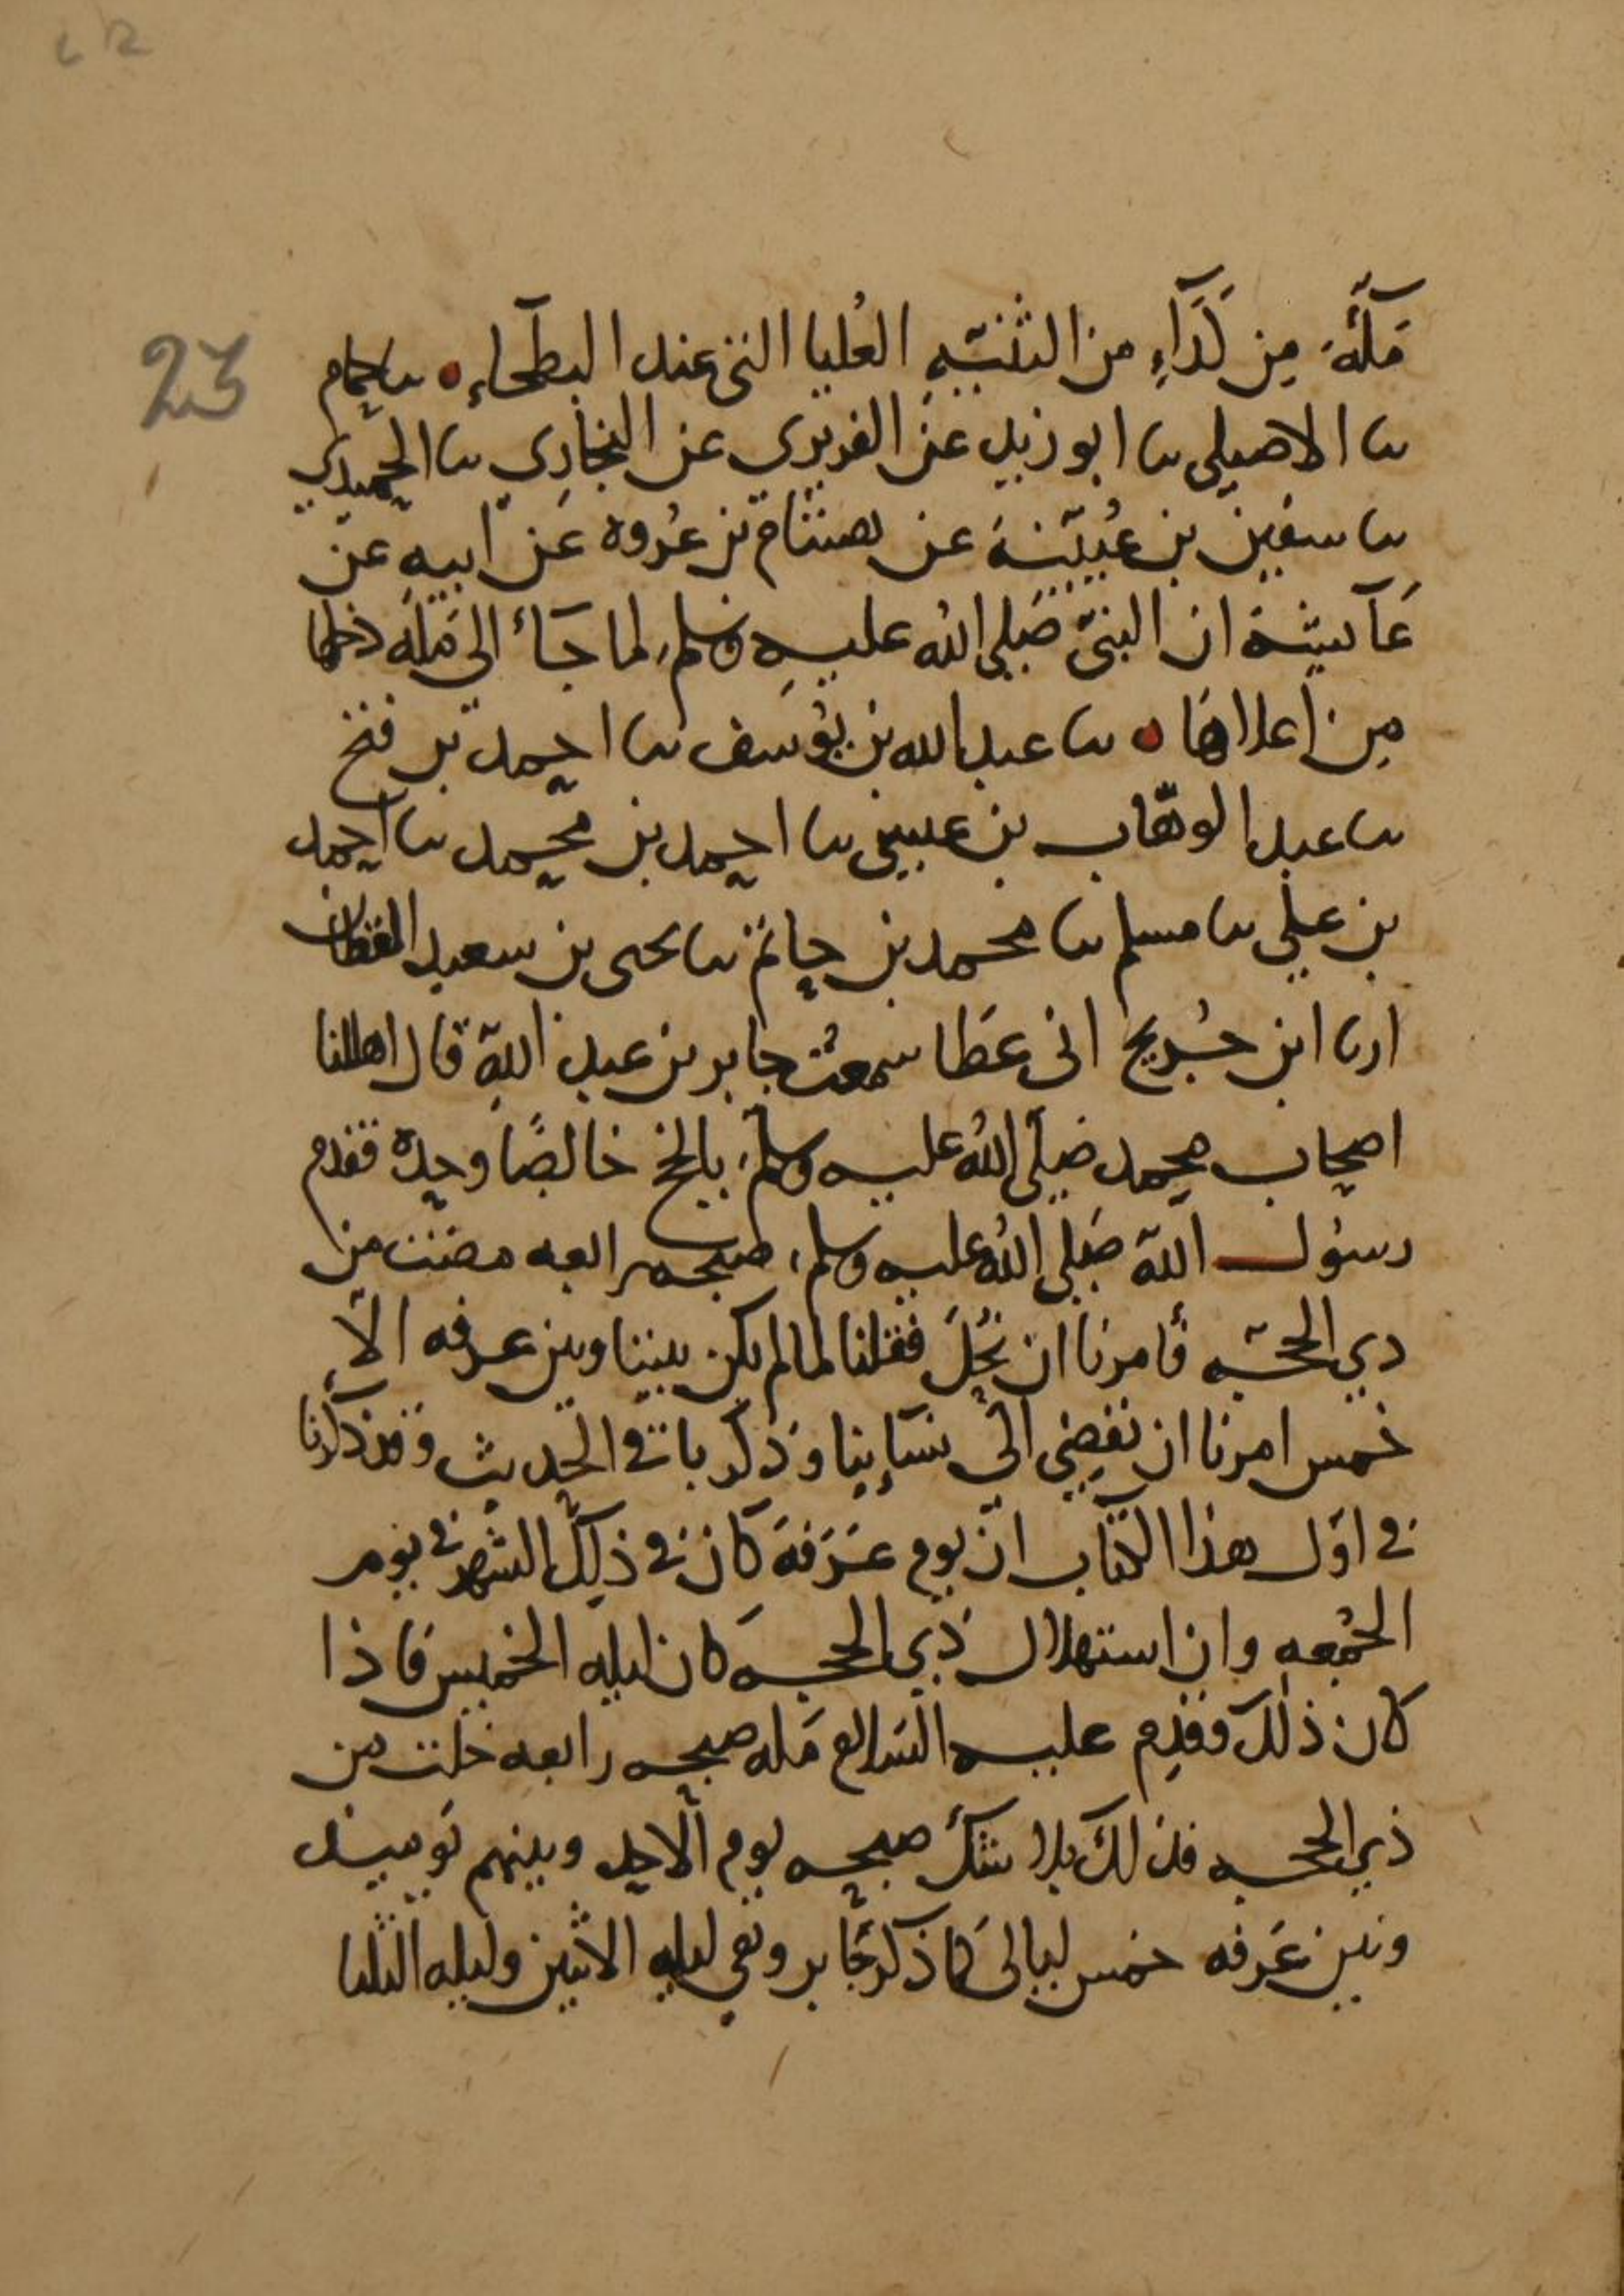 23
مَكّة مِن كَدَآءِ من الثنيّهِ العُليا التى عند البطحاءِ ه نا حمام
نا الاصيلى نا ابو زيد عن الفربري عن البخاري نا الحميدي
نا سفين بن عُيَيْنة عن هشام بن عُروه عَن ابيهِ عن
عَآئيشة ان النبىّ صَلى اللهُ عليهِ وسلم لما جَآء الى مكه دخلها
مِن اعلاها ه نا عبد الله بن يوُسَف نا احمد بن فتح
نا عبد الوهّاب بن عيسى نا احمد بن محمد نا احمد
بن علي نا مسلم نا محمد بن حاتم نا يحيى بن سعيد القطان
ارنا ابن جُريج انى عَطا سمعتُ جابر بن عبد اللّهِ قال اهللنا
اصحاب محمد صَلى اللهُ عليه وسلم بالحج خالصًا وحده فقدم
رسوُل اللّه صَلى اللهُ عليه وسلم صبحه رابعه مضت من
ذي الحجّه فأمرنا ان نُحِلَّ فقلنا لما لم يكن بيننا وبين عرفه الّا
خمس امرنا ان نُفضِي الى نسَآئِنا وذكر باقى الحديث وقد ذكرنا
في اوّل هذا الكتاب انّ يوم عَرَفةَ كان في ذلِكَ الشهر في يوم
الجمُعه وان استهلال ذي الحجه كان ليله الخميس فاذا
كان ذلك فقدِم عليه السّلام مكه صبحه رابعه خلت من
ذي الحجه فذلك بلا شكّ صبحه يوم الاحد وبينهم يوميذ
وبين عَرفه خمس ليالى كما ذكر جَابر وهي ليله الاثنين وليله الثلثا